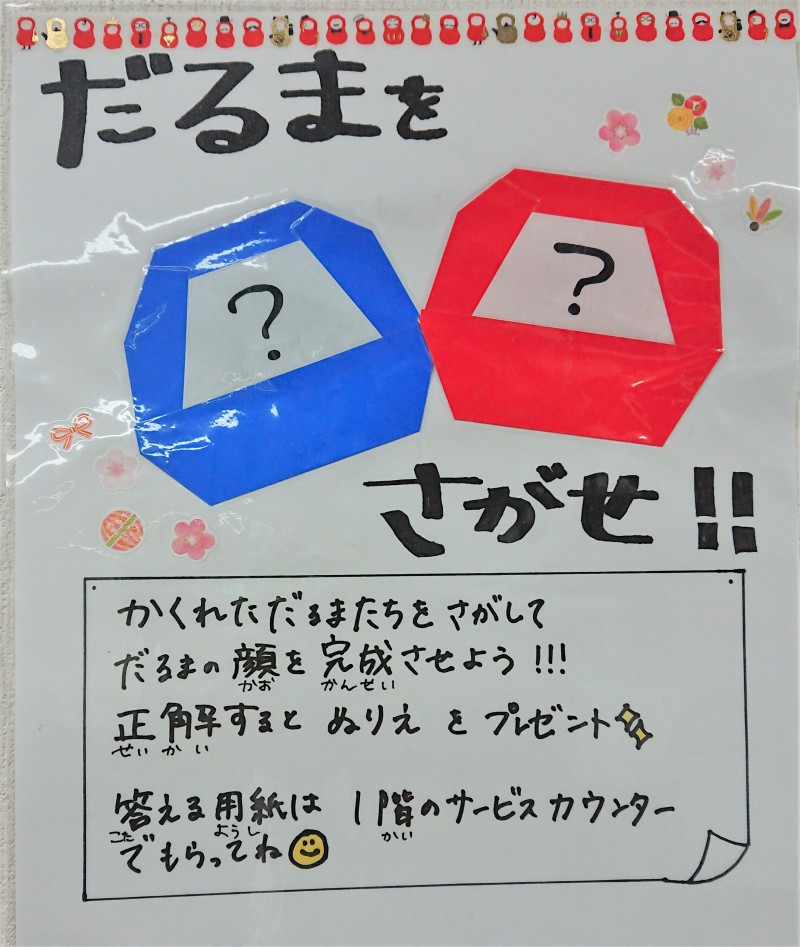 だるまを
?
?
さがせ!!
かくれただるまたちをさがして
だるまの顔を完成させよう!!!
かお かんせい
正解するとぬりえをプレゼント
せいかい
答える用紙は 1階のサービスカウンター
こた ようし かい
でもらってね